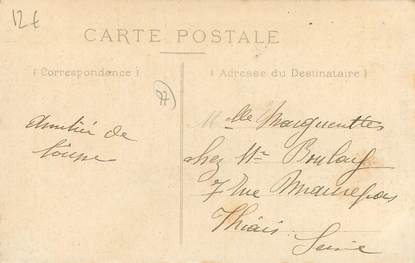 12€
CARTE POSTALE
(Correspondance)
(Adresse du Destinataire)
77
Amitié de
Mlle Marguerittes
chez Mr Boulay
7 rue
Thiais
Seine